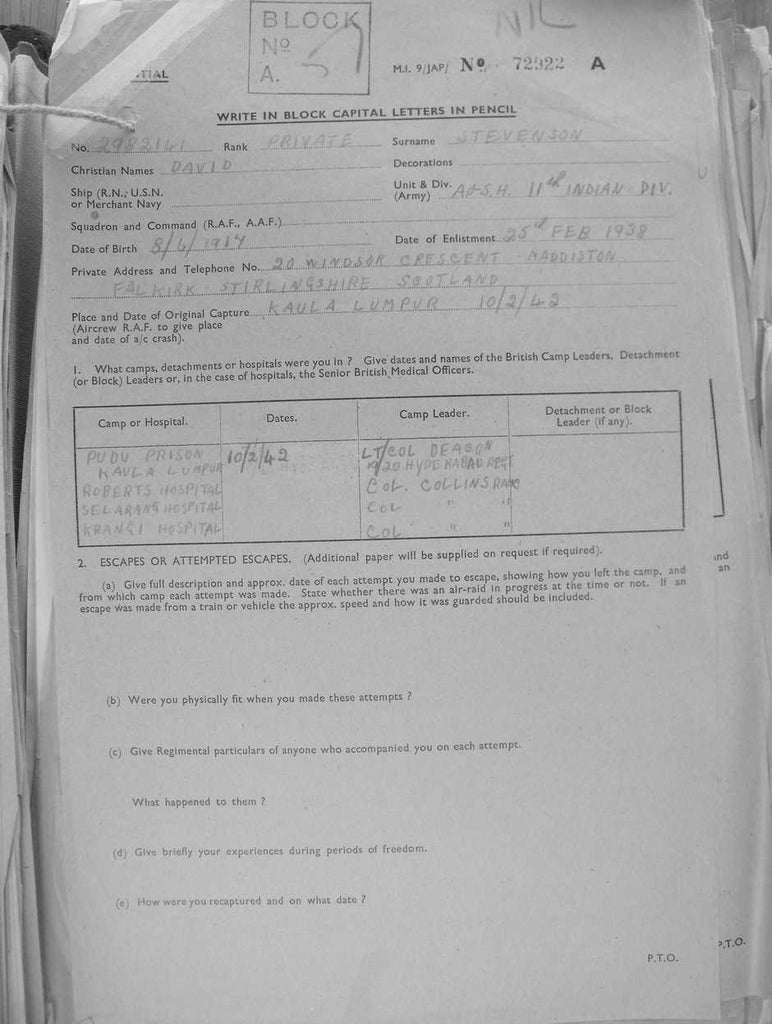 BLOCK
Nº
A. 5
NIL
TIAL
M.I. 9/JAP/ Nº 72922 A
WRITE IN BLOCK CAPITAL LETTERS IN PENCIL
No. 2982141 Rank PRIVATE Surname STEVENSON
Christian Names DAVID Decorations
Ship (R.N., U.S.N. or Merchant Navy Unit & Div. (Army) A&S.H. 11th INDIAN DIV.
Squadron and Command (R.A.F., A.A.F.)
Date of Birth 8/6/1917 Date of Enlistment 25th FEB 1938
Private Address and Telephone No. 20 WINDSOR CRESCENT MADDISTON
FALKIRK STIRLINGSHIRE SCOTLAND
Place and Date of Original Capture KAULA LUMPUR 10/2/42
(Aircrew R.A.F. to give place
and date of a/c crash).
1. What camps, detachments or hospitals were you in ? Give dates and names of the British Camp Leaders, Detachment
(or Block) Leaders or, in the case of hospitals, the Senior British Medical Officers.
Camp or Hospital. Dates. Camp Leader. Detachment or Block Leader (if any).
PUDU PRISON 10/2/42 LT/COL DEACON
KAULA LUMPUR 19/20 HYDERABAD REGT
ROBERTS HOSPITAL COL. COLLINS RAMC
SELARANG HOSPITAL COL " "
KRANGI HOSPITAL COL " "
2. ESCAPES OR ATTEMPTED ESCAPES. (Additional paper will be supplied on request if required).
(a) Give full description and approx. date of each attempt you made to escape, showing how you left the camp, and
from which camp each attempt was made. State whether there was an air-raid in progress at the time or not. If an
escape was made from a train or vehicle the approx. speed and how it was guarded should be included.
nd
an
(b) Were you physically fit when you made these attempts ?
(c) Give Regimental particulars of anyone who accompanied you on each attempt.
What happened to them ?
(d) Give briefly your experiences during periods of freedom.
(e) How were you recaptured and on what date ?
P.T.O.
P.T.O.